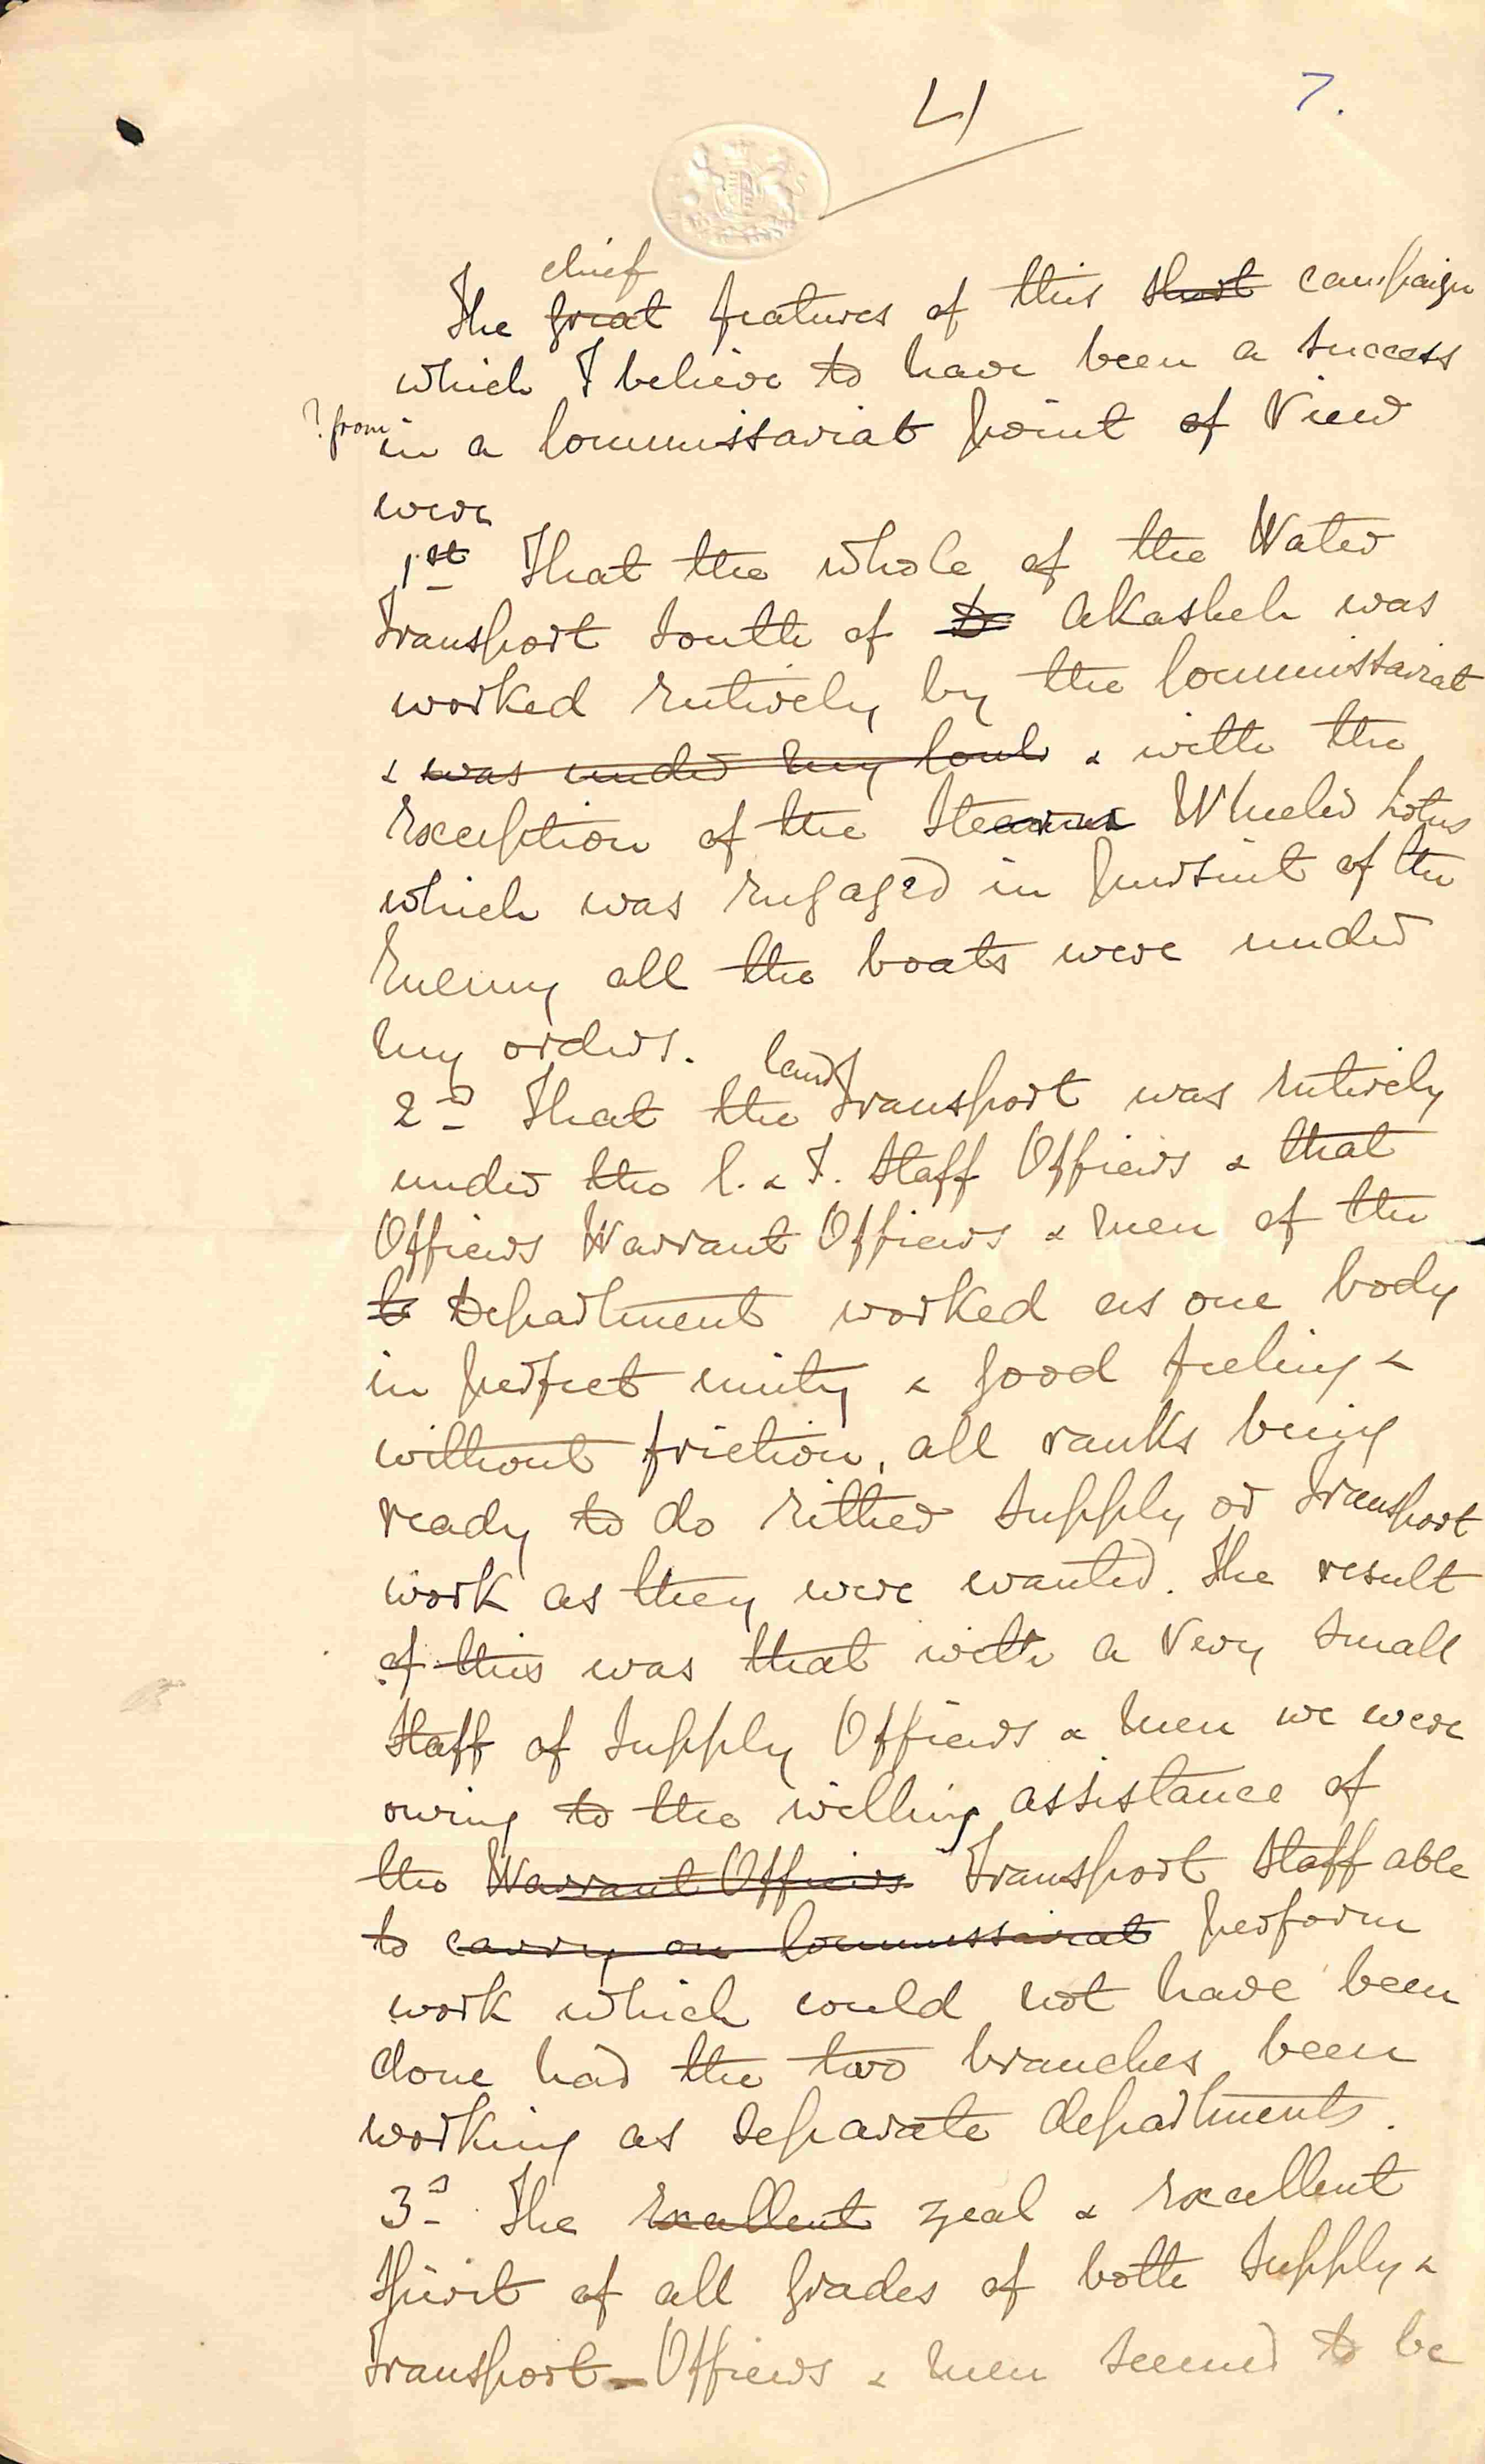 4/ 7.
chief
The great features of this short campaign
which I believe to have been a success
? from in a Commissariat point of View
were
1st That the whole of the Water
Transport South of to Akasheh was
worked entirely by the Commissariat
& was under my Cont & with the
exception of the Steamer Wheeler Lotus
which was engaged in pursuit of the
Enemy all the boats were under
my orders.
land
2nd That the Transport was entirely
under the C. & T. Staff Officers & that
Officers Warrant Officers & men of the
Department worked as one body
in perfect unity & good feeling &
without friction, all ranks being
ready to do either Supply or Transport
work as they were wanted. The result
of this was that with a very small
Staff of Supply Officers & men we were
owing to the willing assistance of
the Warrant Officers Transport Staff able
to carry on Commissariat perform
work which could not have been
done had the two branches been
working as separate departments.
3d The Excellent zeal & excellent
Spirit of all grades of both Supply &
Transport - Officers & men seemed to be